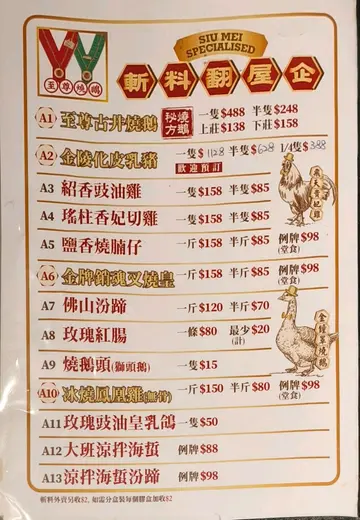 SIU MEI
SPECIALISED
至尊燒鵝
斬料翻屋企
A1 至尊古井燒鵝 秘燒方鵝 一隻$488 半隻$248
上莊$138 下莊$158
A2 金陵化皮乳豬 一隻$1128 半隻$628 1/4隻$388
歡迎預訂
A3 紹香豉油雞 一隻$158 半隻$85
A4 瑤柱香妃切雞 一隻$158 半隻$85
A5 鹽香燒腩仔 一斤$158 半斤$85 例牌$98
(堂食)
A6 金牌銷魂叉燒皇 一斤$158 半斤$85 例牌$98
(堂食)
A7 佛山汾蹄 一斤$120 半斤$70
A8 玫瑰紅腸 一條$80 最少$20
(計)
A9 燒鵝頭(獅頭鵝) 一隻$15
A10 冰燒鳳凰雞(無骨) 一斤$150 半斤$80 例牌$98
(堂食)
A11 玫瑰豉油皇乳鴿 一隻$50
A12 大班涼拌海蜇 例牌$88
A13 涼拌海蜇汾蹄 例牌$98
斬料外賣另收$2, 如需分盒裝每個膠盒加收$2